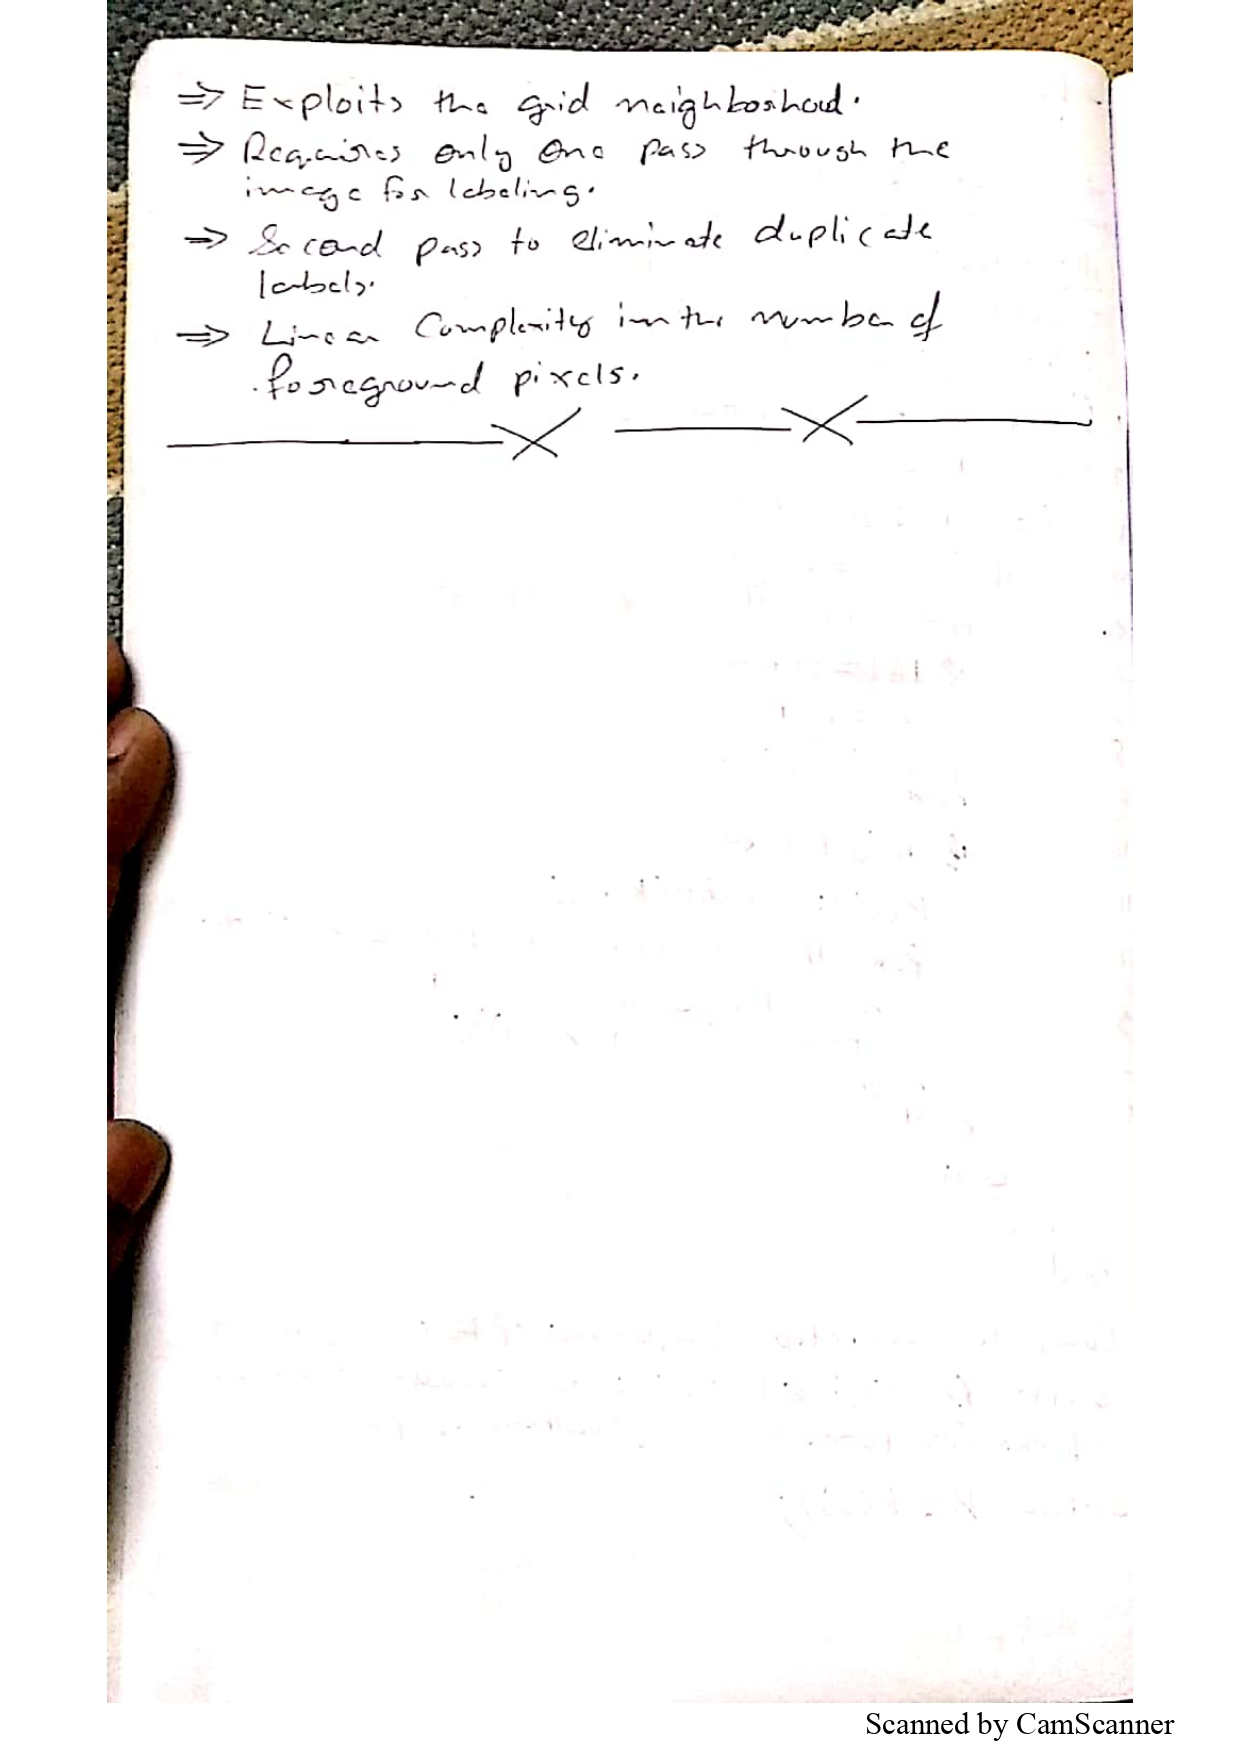 ⇒ Exploits the grid neighborhood.
⇒ Requires only one pass through the
image for labeling.
⇒ Second pass to eliminate duplicate
labels.
⇒ Linear Complexity in the number of
foreground pixels.
Scanned by CamScanner